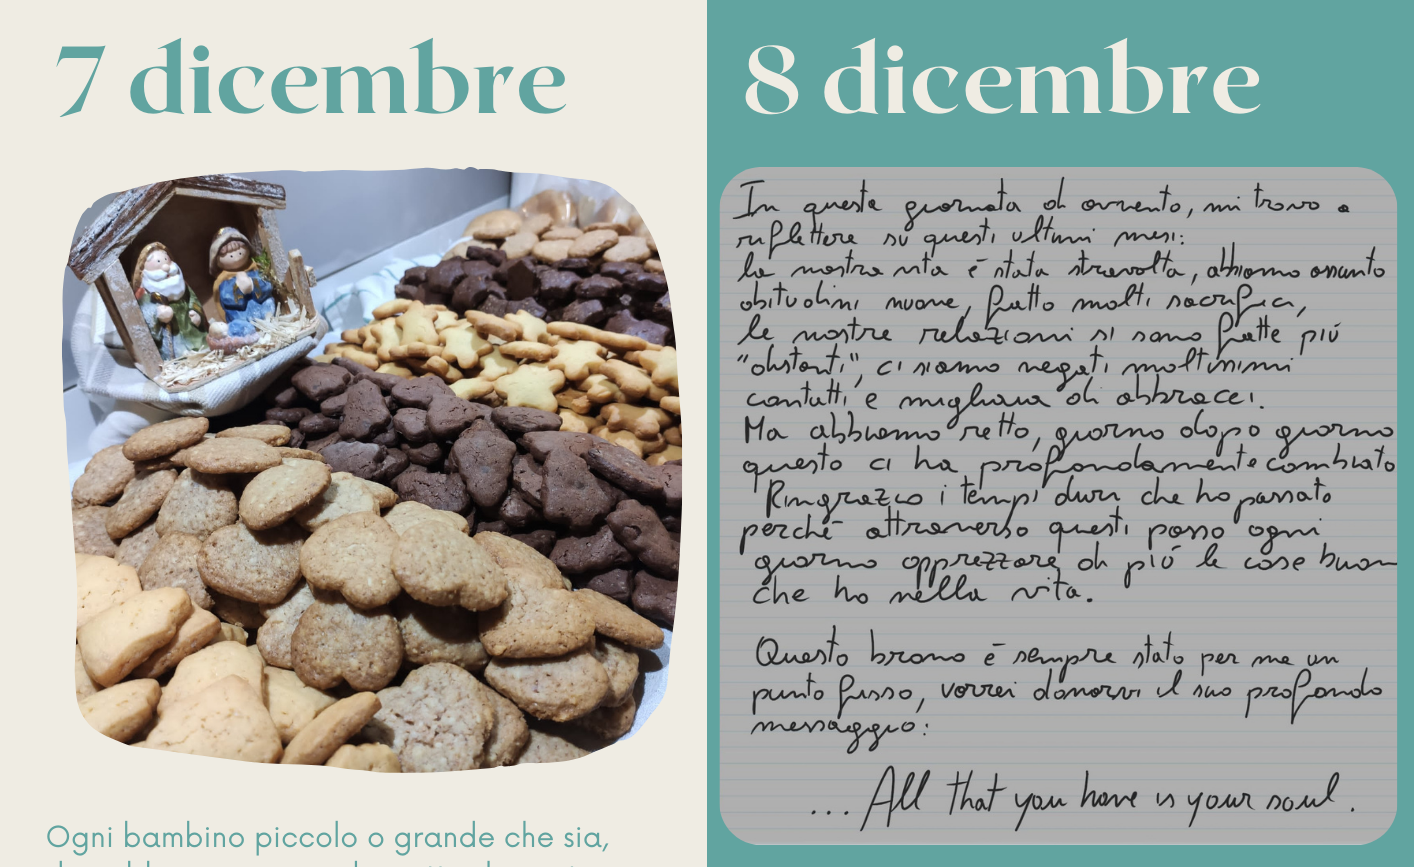 7 dicembre
Ogni bambino piccolo o grande che sia,
8 dicembre
In questa giornata di avvento, mi trovo a
riflettere su questi ultimi mesi:
la nostra vita è stata stravolta, abbiamo assunto
abitudini nuove, fatto molti sacrifici,
le nostre relazioni si sono fatte più
"distanti", ci siamo negati moltissimi
contatti e migliaia di abbracci.
Ma abbiamo retto, giorno dopo giorno
questo ci ha profondamente cambiato
Ringrazio i tempi duri che ho passato
perchè attraverso questi posso ogni
giorno apprezzare di più le cose buon
che ho nella vita.
Questo brano è sempre stato per me un
punto fisso, vorrei donarvi il suo profondo
messaggio:
... All that you have is your soul.